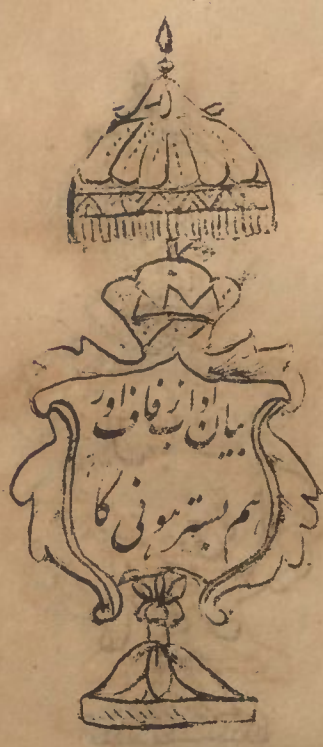 بیان اداب زفاف اور
ہم بستر ہونی کا